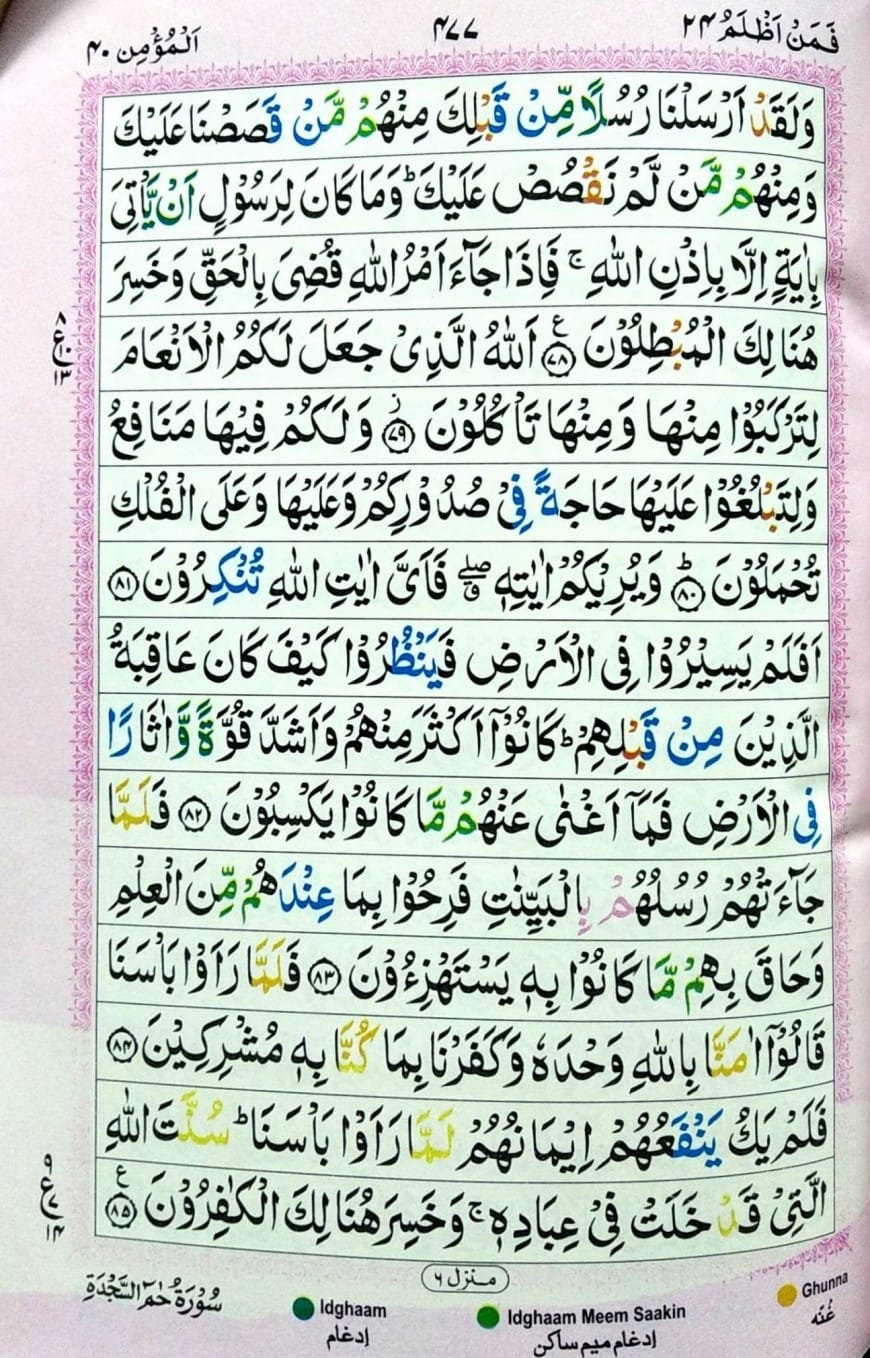 فَمَنْ اَظْلَمُ ٢٤
٤٧٧
اَلْمُؤْمِن ٤٠
وَلَقَدْ اَرْسَلْنَا رُسُلًا مِّنْ قَبْلِكَ مِنْهُمْ مَّنْ قَصَصْنَا عَلَيْكَ
وَمِنْهُمْ مَّنْ لَّمْ نَقْصُصْ عَلَيْكَ ؕ وَمَا كَانَ لِرَسُوْلٍ اَنْ يَّاْتِىَ
بِاٰيَةٍ اِلَّا بِاِذْنِ اللّٰهِ ۚ فَاِذَا جَآءَ اَمْرُ اللّٰهِ قُضِىَ بِالْحَقِّ وَخَسِرَ
هُنَالِكَ الْمُبْطِلُوْنَ ﴿٧٨﴾ ع اَللّٰهُ الَّذِىْ جَعَلَ لَكُمُ الْاَنْعَامَ
لِتَرْكَبُوْا مِنْهَا وَمِنْهَا تَاْكُلُوْنَ ﴿٧٩﴾ ز وَلَكُمْ فِيْهَا مَنَافِعُ
وَلِتَبْلُغُوْا عَلَيْهَا حَاجَةً فِىْ صُدُوْرِكُمْ وَعَلَيْهَا وَعَلَى الْفُلْكِ
تُحْمَلُوْنَ ﴿٨٠﴾ ؕ وَيُرِيْكُمْ اٰيٰتِهٖ ۖ فَاَىَّ اٰيٰتِ اللّٰهِ تُنْكِرُوْنَ ﴿٨١﴾
اَفَلَمْ يَسِيْرُوْا فِى الْاَرْضِ فَيَنْظُرُوْا كَيْفَ كَانَ عَاقِبَةُ
الَّذِيْنَ مِنْ قَبْلِهِمْ ؕ كَانُوْٓا اَكْثَرَ مِنْهُمْ وَاَشَدَّ قُوَّةً وَّاٰثَارًا
فِى الْاَرْضِ فَمَآ اَغْنٰى عَنْهُمْ مَّا كَانُوْا يَكْسِبُوْنَ ﴿٨٢﴾ فَلَمَّا
جَآءَتْهُمْ رُسُلُهُمْ بِالْبَيِّنٰتِ فَرِحُوْا بِمَا عِنْدَهُمْ مِّنَ الْعِلْمِ
وَحَاقَ بِهِمْ مَّا كَانُوْا بِهٖ يَسْتَهْزِءُوْنَ ﴿٨٣﴾ فَلَمَّا رَاَوْا بَاْسَنَا
قَالُوْٓا اٰمَنَّا بِاللّٰهِ وَحْدَهٗ وَكَفَرْنَا بِمَا كُنَّا بِهٖ مُشْرِكِيْنَ ﴿٨٤﴾
فَلَمْ يَكُ يَنْفَعُهُمْ اِيْمَانُهُمْ لَمَّا رَاَوْا بَاْسَنَا ؕ سُنَّتَ اللّٰهِ
الَّتِىْ قَدْ خَلَتْ فِىْ عِبَادِهٖ ۚ وَخَسِرَ هُنَالِكَ الْكٰفِرُوْنَ ﴿٨٥﴾ ع
٨ ع ١٠ ١٣
٩ ع ٧ ١٤
منزل ٦
سُوْرَةُ حٰمٓ السَّجْدَةِ
Idghaam
إدغام
Idghaam Meem Saakin
إدغام ميم ساكن
Ghunna
غُنَّه